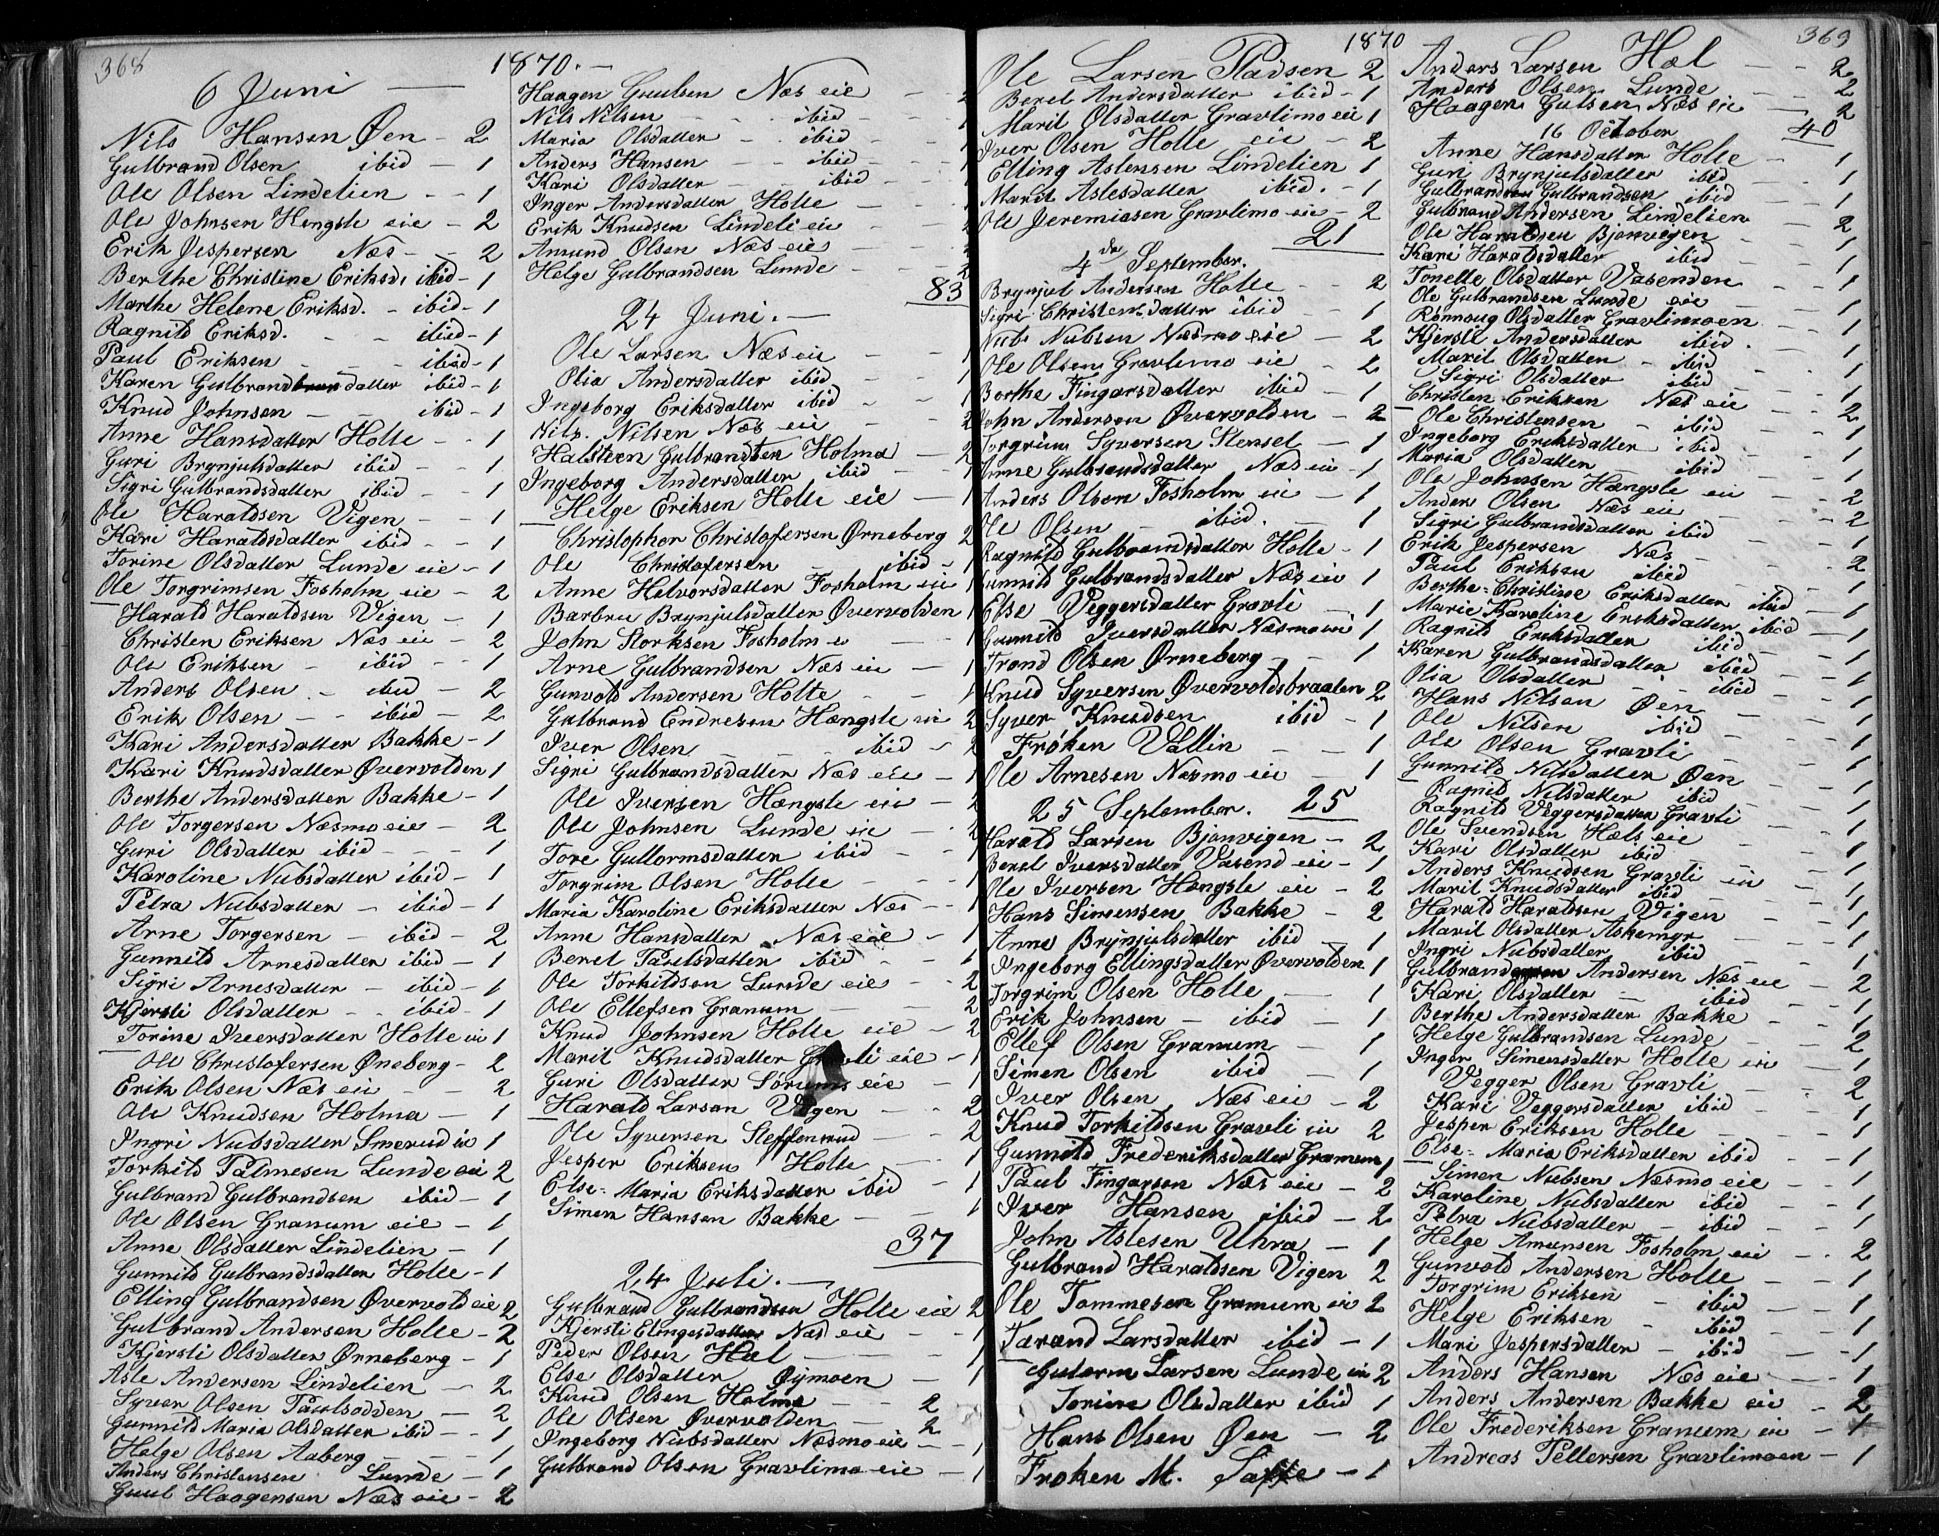 368
1870.
6 Juni
Nils Hansen Øen - 2
Gulbrand Olsen ibid - 1
Ole Olsen Lindelien - - 1
Ole Johnsen Hengsle eie - 2
Erik Jespersen Næs - - 2
Berthe Christine Eriksd. ibid - 1
Marthe Helene Eriksd. - ibid - 1
Ragnild Eriksd. - - ibid - 1
Paul Eriksen - - - ibid - 1
Karen Gulbrandsdatter ibid - 1
Knud Johnsen - - ibid - 1
Anne Hansdatter Holte - - 1
Guri Brynjulsdatter ibid - - 1
Sigri Gulbrandsdatter ibid - - 1
Ole Haraldsen Vigen - - 1
Kari Haraldsdatter ibid - - 1
Torine Olsdatter Lunde eie - 1
Ole Torgrimsen Fosholm eie - 2
Harald Haraldsen Vigen - 1
Christen Eriksen Næs eie - 2
Ole Eriksen - ibid - - 1
Anders Olsen - ibid - 2
Erik Olsen - - ibid - 2
Kari Andersdatter Bakke - 1
Kari Knudsdatter Øvervolden 1
Berthe Andersdatter Bakke - 1
Ole Torgersen Næsmo eie - 2
Guri Olsdatter ibid - - - 1
Karoline Nubsdatter ibid - 1
Petra Nubsdatter - ibid - 1
Arne Torgersen - ibid - 2
Gunnild Arnesdatter ibid - 1
Sigri Arnesdatter - ibid - 1
Kjersti Olsdatter - - ibid - 1
Torine Iversdatter Holte eie 1
Ole Christofersen Øneberg - 2
Erik Olsen Næs eie - - 2
Ole Knudsen Holma - 1
Ingri Nubsdatter Smerud eie 1
Torkild Palmesen Lunde eie 2
Gulbrand Gulbrandsen ibid - 1
Ole Olsen Granum eie - 1
Anne Olsdatter Lindelien - 1
Gunnild Gulbrandsdatter Holte - 1
Elling Gulbrandsen Øvervold eie 2
Gulbrand Andersen Holte - 2
Kjersti Olsdatter Ørneberg - 1
Asle Andersen Lindelien - 2
Syver Olsen Paulsodden - 2
Gunnild Maria Olsdatter ibid - - 1
Helge Olsen Aaberg - - - 1
Anders Christensen Lunde - 1
Guul Haagensen Næs eie - 2
Haagen Guulsen Næs eie - - 2
Nils Nilsen - - - ibid - - 1
Maria Olsdatter - - ibid - - 1
Anders Hansen - - ibid - - 1
Kari Olsdatter - - ibid - - 1
Inger Andersdatter Holte - - -
Erik Knudsen Lindeli eie - - -
Amund Olsen Næs eie - - -
Helge Gulbrandsen Lunde - - - 2
83
24 Juni. -
Ole Larsen Næs eie - - 1
Olia Andersdatter ibid - - 1
Ingeborg Eriksdatter ibid - -
Nils Nilsen Næs eie - - 2
Halsteen Gulbrandsen Holma - 2
Ingeborg Andersdatter ibid - - 1
Helge Eriksen Holte eie - 1
Christopher Christofersen Ørneberg 2
Ole Christofersen - ibid - 1
Anne Helvorsdatter Fosholm eie 1
Barbru Brynjulsdatter Øvervolden 1
John Storksen Fosholm e - - 1
Arne Gulbrandsen Næs eie - 1
Gunvold Andersen Holte - - 1
Gulbrand Endresen Hængsle eie 2
Iver Olsen - - - ibid -
Sigri Gulbrandsdatter Næs eie - 1
Ole Iversen Hængsle eie - 2
Ole Johnsen Lunde eie - 2
Tore Guttormsdatter ibid - - 1
Torgrim Olsen Holte - - - 1
Maria Karoline Eriksdatter Næs - - 1
Anne Hansdatter Næs eie - 1
Beret Paulsdatter ibid - - 1
Ole Torkildsen Lunde eie - - 2
Ole Ellefsen Granum - - - 2
Knud Johnsen Holte eie - 2
Marit Knudsdatter Gravli eie - 1
Guri Olsdatter Sørums eie - 1
Harald Larsen Vigen - - 2
Ole Syversen Steffensrud - - 2
Jesper Eriksen Holte - - 1
Else Maria Eriksdatter ibid - 1
Simen Hansen Bakke - - - 1
37
24 Juli. -
Gulbrand Gulbrandsen Holte eie 2
Kjersti Elingsdatter Næs eie - - 1
Peder Olsen Hæl - - - 1
Else Olsdatter Øymoen - 1
Knud Olsen Holme - - 2
Ole Olsen Øvervolden - - 2
Ingeborg Nubsdatter Næsmo eie - - 1
Gulbrand Olsen Gravlimo eie - 1
1870
369
Ole Larsen Pladsen 2
Beret Andersdatter ibid - 1
Marit Olsdatter Gravlimo eie 1
Iver Olsen Holte eie 2
Elling Astensen Lindelien 1
Marit Aslesdatter ibid. - 1
Ole Jeremiasen Gravlimo eie - 2
21
4de September.
Brynjul Andersen Holte - - 2
Sigri Christensdatter ibid - 1
Nub Nubsen Næsmo eie - 2
Ole Olsen Gravlimo eie - 2
Berthe Fingarsdatter ibid - 1
John Andersen Øvervolden - 2
Torgrim Syversen Stenset - 1
Anne Gulbrandsdatter Næs eie - 1
Anders Olsen Fosholm eie - 1
Ole Olsen - ibid. - 1
Ragnild Gulbrandsdatter Holte - 1
Gunnild Gulbrandsdatter Næs eie 1
Else Veggersdatter Gravli - 1
Gunnild Iversdatter Næsmo eie 1
Trond Olsen Ørneberg - - 1
Knud Syversen Øvervoldsbraaten 2
Syver Knudsen ibid - 1
Frøken Vallin - - 1
Ole Arnesen Næsmo eie - 1
25 September. 25
Harald Larsen Bjonvigen - 2
Beret Iversdatter Vasend eie - 1
Ole Iversen Hængsle eie - 2
Hans Simensen Bakke - 2
Anne Brynjulsdatter ibid - 1
Ingeborg Ellingsdatter Øvervolden 1
Torgrim Olsen Holte - 1
Erik Johnsen - ibid - 1
Ellef Olsen Granum - 1
Simen Olsen ibid - 1
Iver Olsen Næs eie - 2
Knud Torkildsen Gravli eie 2
Gunnild Frederiksdatter Granum 1
Paul Fingarsen Næs eie - 2
Iver Hansen ibid - 2
John Aslesen Uhra - 1
Gulbrand Haraldsen Vigen 2
Ole Tommesen Granum eie 2
Tarand Larsdatter ibid - 1
Gutorm Larsen Lunde eie 2
Torine Olsdatter ibid 1
Hans Olsen Øen - 2
Frøken M. Saxe - 1
Anders Larsen Hæl - - 2
Anders Olsen Lunde - - 2
Haagen Gulsen Næs eie - 2
16 October 40
Anne Hansdatter Holte - 1
Guri Brynjulsdatter ibid - 1
Gulbrand Gulbrandsen ibid - 1
Gulbrand Andersen Lindelien -
Ole Haraldsen Bjonvigen - - 2
Kari Haraldsdatter ibid - - 1
Tonette Olsdatter Vasenden - 1
Ole Gulbrandsen Lunde eie - - 1
Rønnoug Olsdatter Gravlimoen - - 1
Kjersti Andersdatter ibid - - 1
Marit Olsdatter - ibid - - 1
Sigri Olsdatter ibid - - 1
Christen Eriksen Næs eie - -
Ole Christensen - ibid - - 2
Ingeborg Eriksdatter ibid - - 1
Maria Olsdatter - ibid - - 1
Ole Johnsen Hængsle eie - -
Anders Olsen Næs eie - - 2
Sigri Gulbrandsdatter ibid - - 2
Erik Jespersen Næs - - 1
Paul Eriksen ibid - - 2
Berthe Christine Eriksdatter ibid - 1
Marie Karoline Eriksdatter ibid - 1
Ragnild Eriksdatter ibid - - 1
Karen Gulbrandsdatter ibid - - 1
Olia Olsdatter - - ibid - 1
Hans Nilsen Øen - - 1
Ole Nilsen ibid - - 1
Ole Olsen Gravli - - 1
Gunnild Nilsdatter Øen - 1
Ragnid Nilsdatter ibid - - 1
Ragnild Veggersdatter Gravli - 1
Ole Svendsen Hæls eie - - 1
Kari Olsdatter ibid - - 1
Anders Knudsen Gravli eie - 1
Marit Knudsdatter ibid - - 1
Harald Haraldsen Vigen - - 1
Marit Olsdatter Askemyr - - 1
Ingri Nubsdatter ibid - - 1
Gulbrand Andersen Næs eie - 2
Kari Olsdatter - ibid - - 1
Berthe Andersdatter Bakke - - 1
Helge Gulbrandsen Lunde - - 2
Inger Simensdatter Holte eie - 1
Vegger Olsen Gravli - - 2
Kari Veggersdatter ibid - - 1
Jesper Eriksen Holte - - 1
Else Maria Eriksdatter ibid - - 1
Simen Nubsen Næsmo eie - - 1
Karoline Nubsdatter ibid - - 1
Petra Nubsdatter - ibid - - 1
Helge Amunsen Fosholm eie - - 2
Gunvold Andersen Holte - - 1
Torgrim Eriksen - ibid - 1
Helge Eriksen - ibid - - 1
Mari Jespersdatter - ibid - - 1
Anders Hansen Næs eie - - 1
Anders Andersen Bakke eie - 2
Ole Frederiksen Granum eie - 1
Andreas Pettersen Gravlimoen - 1